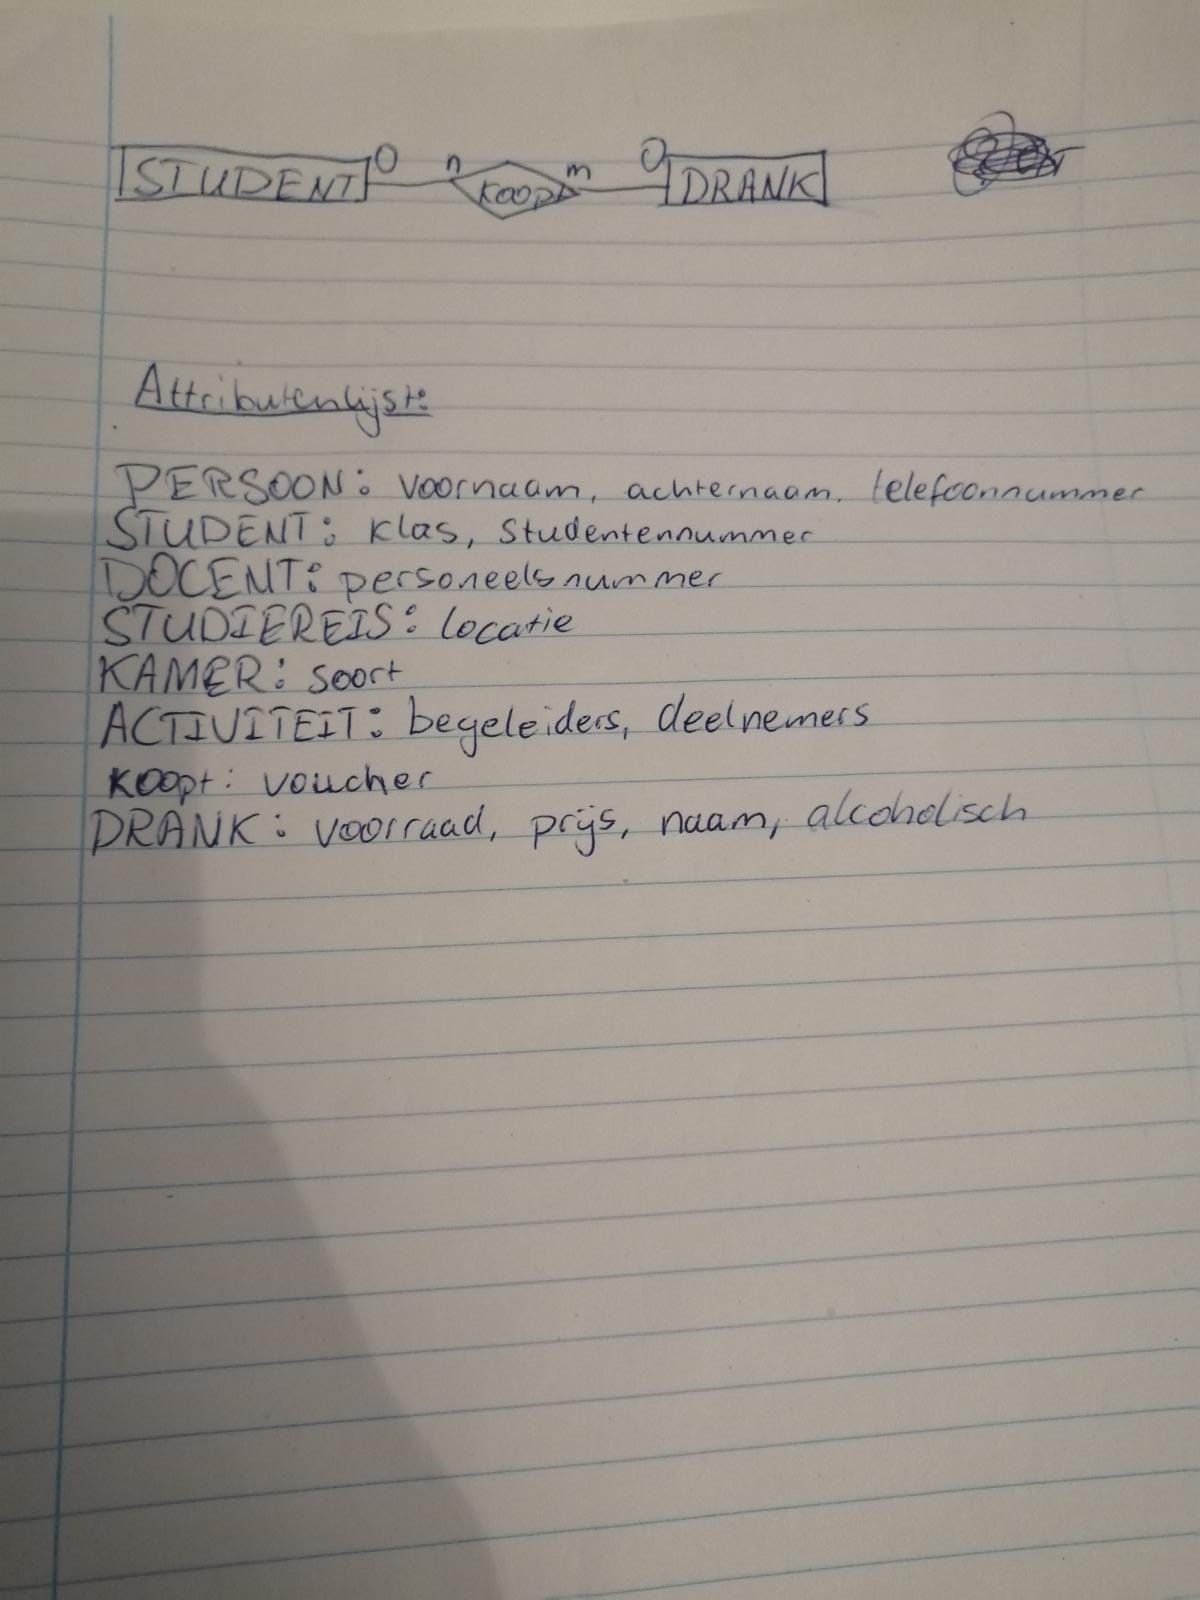 STUDENT 0 n koopt m 0 DRANK
Attributenlijst:
PERSOON: voornaam, achternaam, telefoonnummer
STUDENT: klas, studentennummer
DOCENT: personeelsnummer
STUDIEREIS: locatie
KAMER: soort
ACTIVITEIT: begeleiders, deelnemers
koopt: voucher
DRANK: voorraad, prijs, naam, alcoholisch